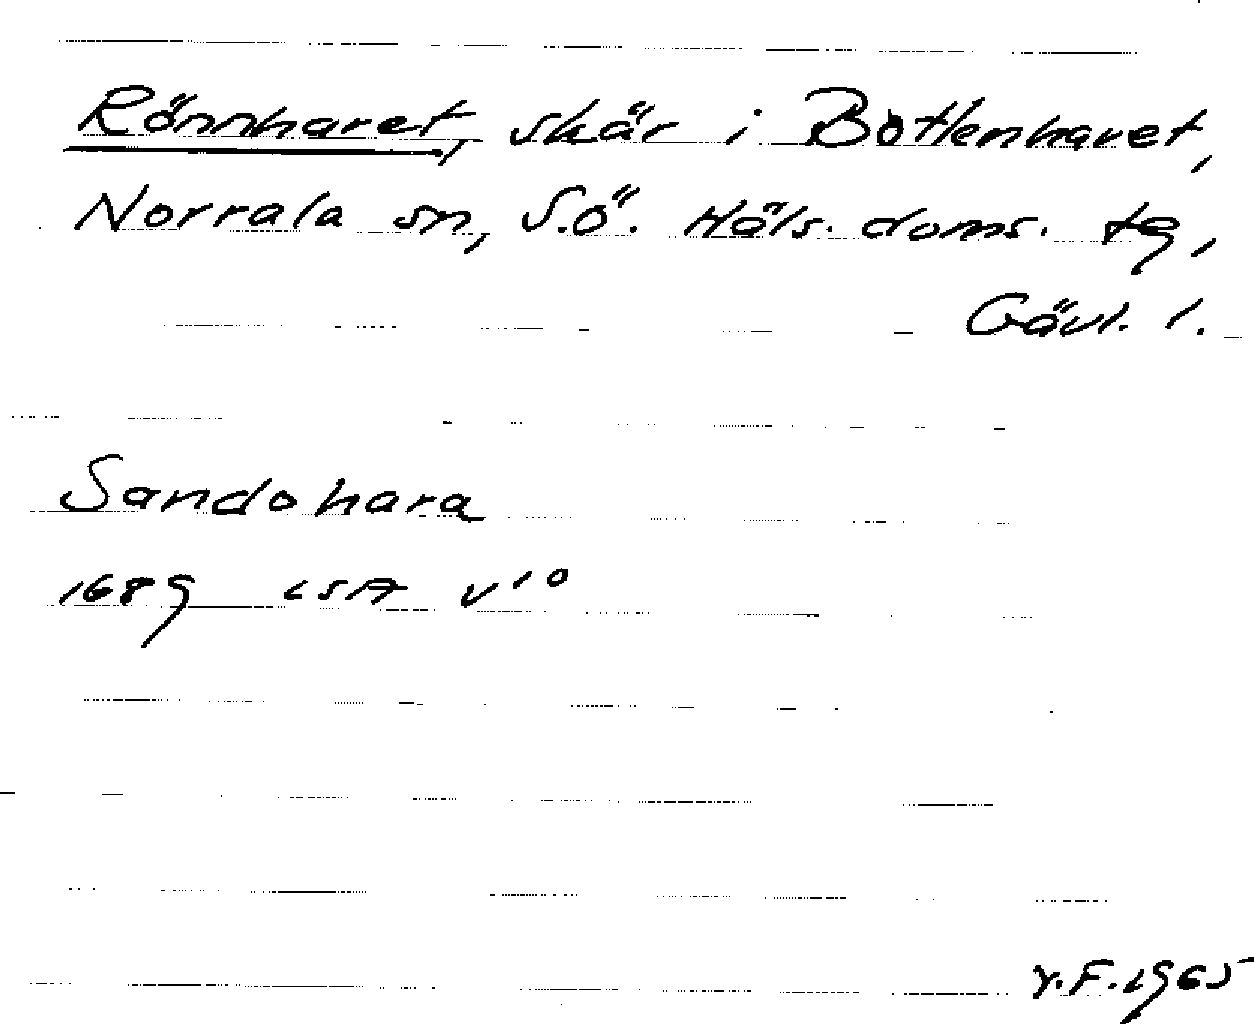 Rönnharet, skär i Bottenhavet,
Norrala sn, S.Ö. Häls. doms. tg,
Gävl. l.
Sandohara
1689 LSA V 10
Y.F. 1965